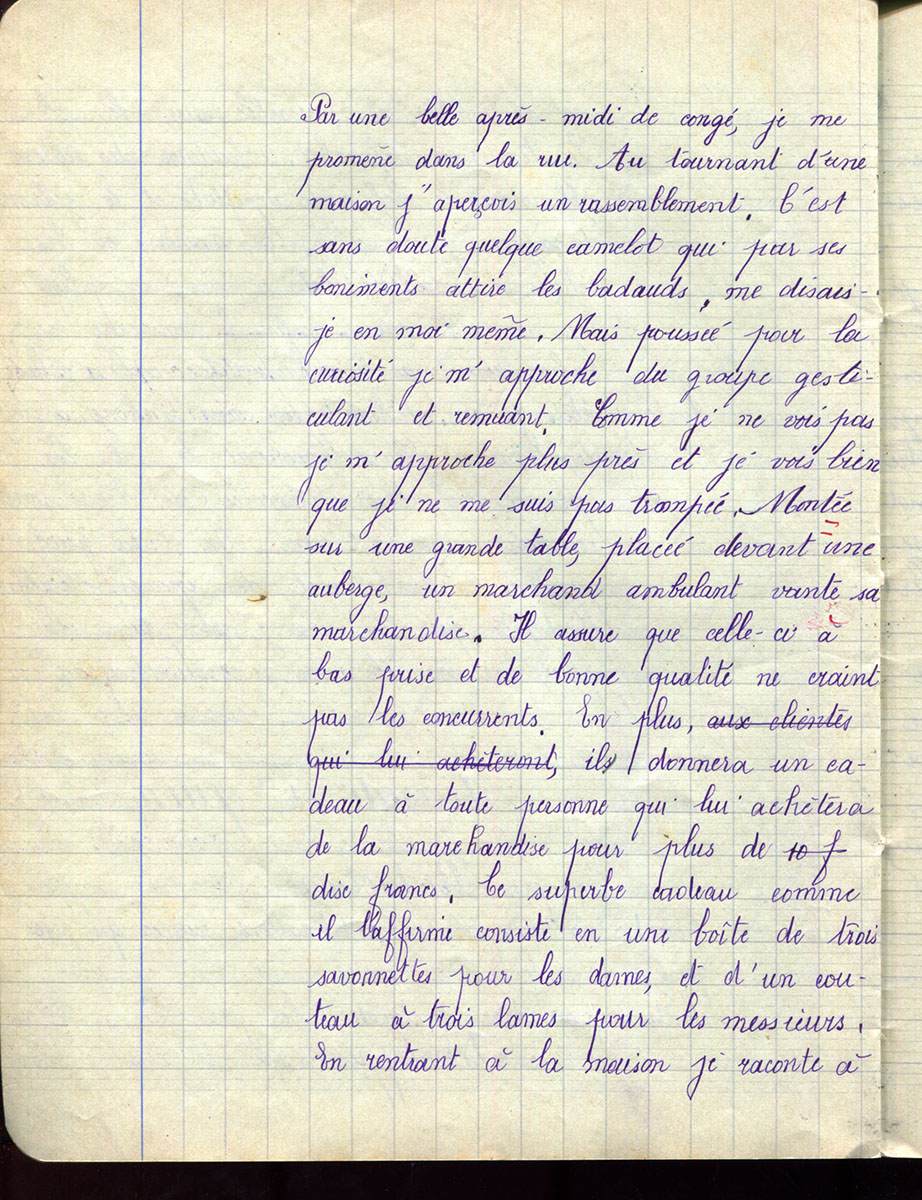 Par une belle après-midi de congé, je me
promène dans la rue. Au tournant d'une
maison j'aperçois un rassemblement. C'est
sans doute quelque camelot qui par ses
boniments attire les badauds, me disais-
je en moi même. Mais poussée pour la
curiosité je m'approche du groupe gesti-
culant et remuant. Comme je ne vois pas
je m'approche plus près et je vois bien
que je ne me suis pas trompée. Montée
sur une grande table, placée devant une
auberge, un marchand ambulant vante sa
marchandise. Il assure que celle-ci à
bas prise et de bonne qualité ne craint
pas les concurrents. En plus, aux clientes
qui lui achèteront, ils donnera un ca-
deau à toute personne qui lui achètera
de la marchandise pour plus de 10 f
dise francs. Ce superbe cadeau comme
il l'affirme consiste en une boîte de trois
savonnettes pour les dames, et d'un cou-
teau à trois lames pour les messieurs.
En rentrant à la maison je raconte à